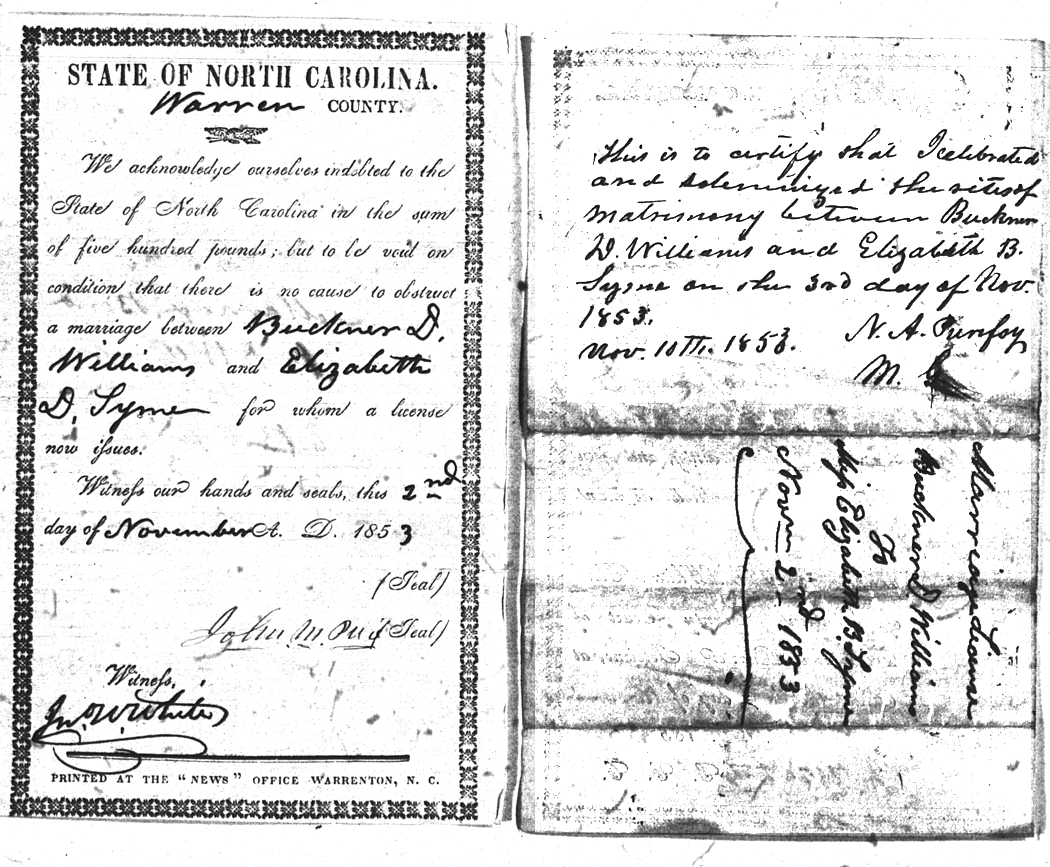 STATE OF NORTH CAROLINA.
Warren COUNTY.
We acknowledge ourselves indebted to the
State of North Carolina in the sum
of five hundred pounds; but to be void on
condition that there is no cause to obstruct
a marriage between Buckner D.
Williams and Elizabeth
D. Syme for whom a license
now issues.
Witness our hands and seals, this 2nd
day of November A. D. 1853
(Seal)
John M. (Seal)
Witness,
Jno W. White
PRINTED AT THE "NEWS" OFFICE WARRENTON, N. C.
This is to certify that I celebrated
and solemnized the rites of
matrimony between Buckner
D. Williams and Elizabeth B.
Syme on the 3rd day of Nov.
1853.
Nov. 10th. 1853. N. A. Purefoy
M. G
Marriage License
Buckner D. Williams
To
Miss Elizabeth B. Syme
Novr 2nd 1853